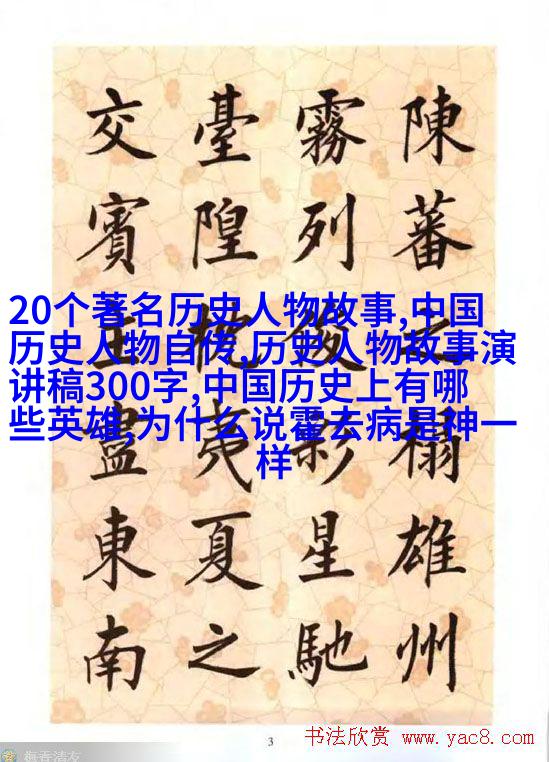 陳蕃之榻雄州
霧列俊彩星馳
臺隍枕夷夏之
交賓主盡東南
20个著名历史人物故事,中国
历史人物自传,历史人物故事演
讲稿300字,中国历史上有哪
些英雄,为什么说霍去病是神一
样
3
书法欣赏 www.yac8.com
梅香清友